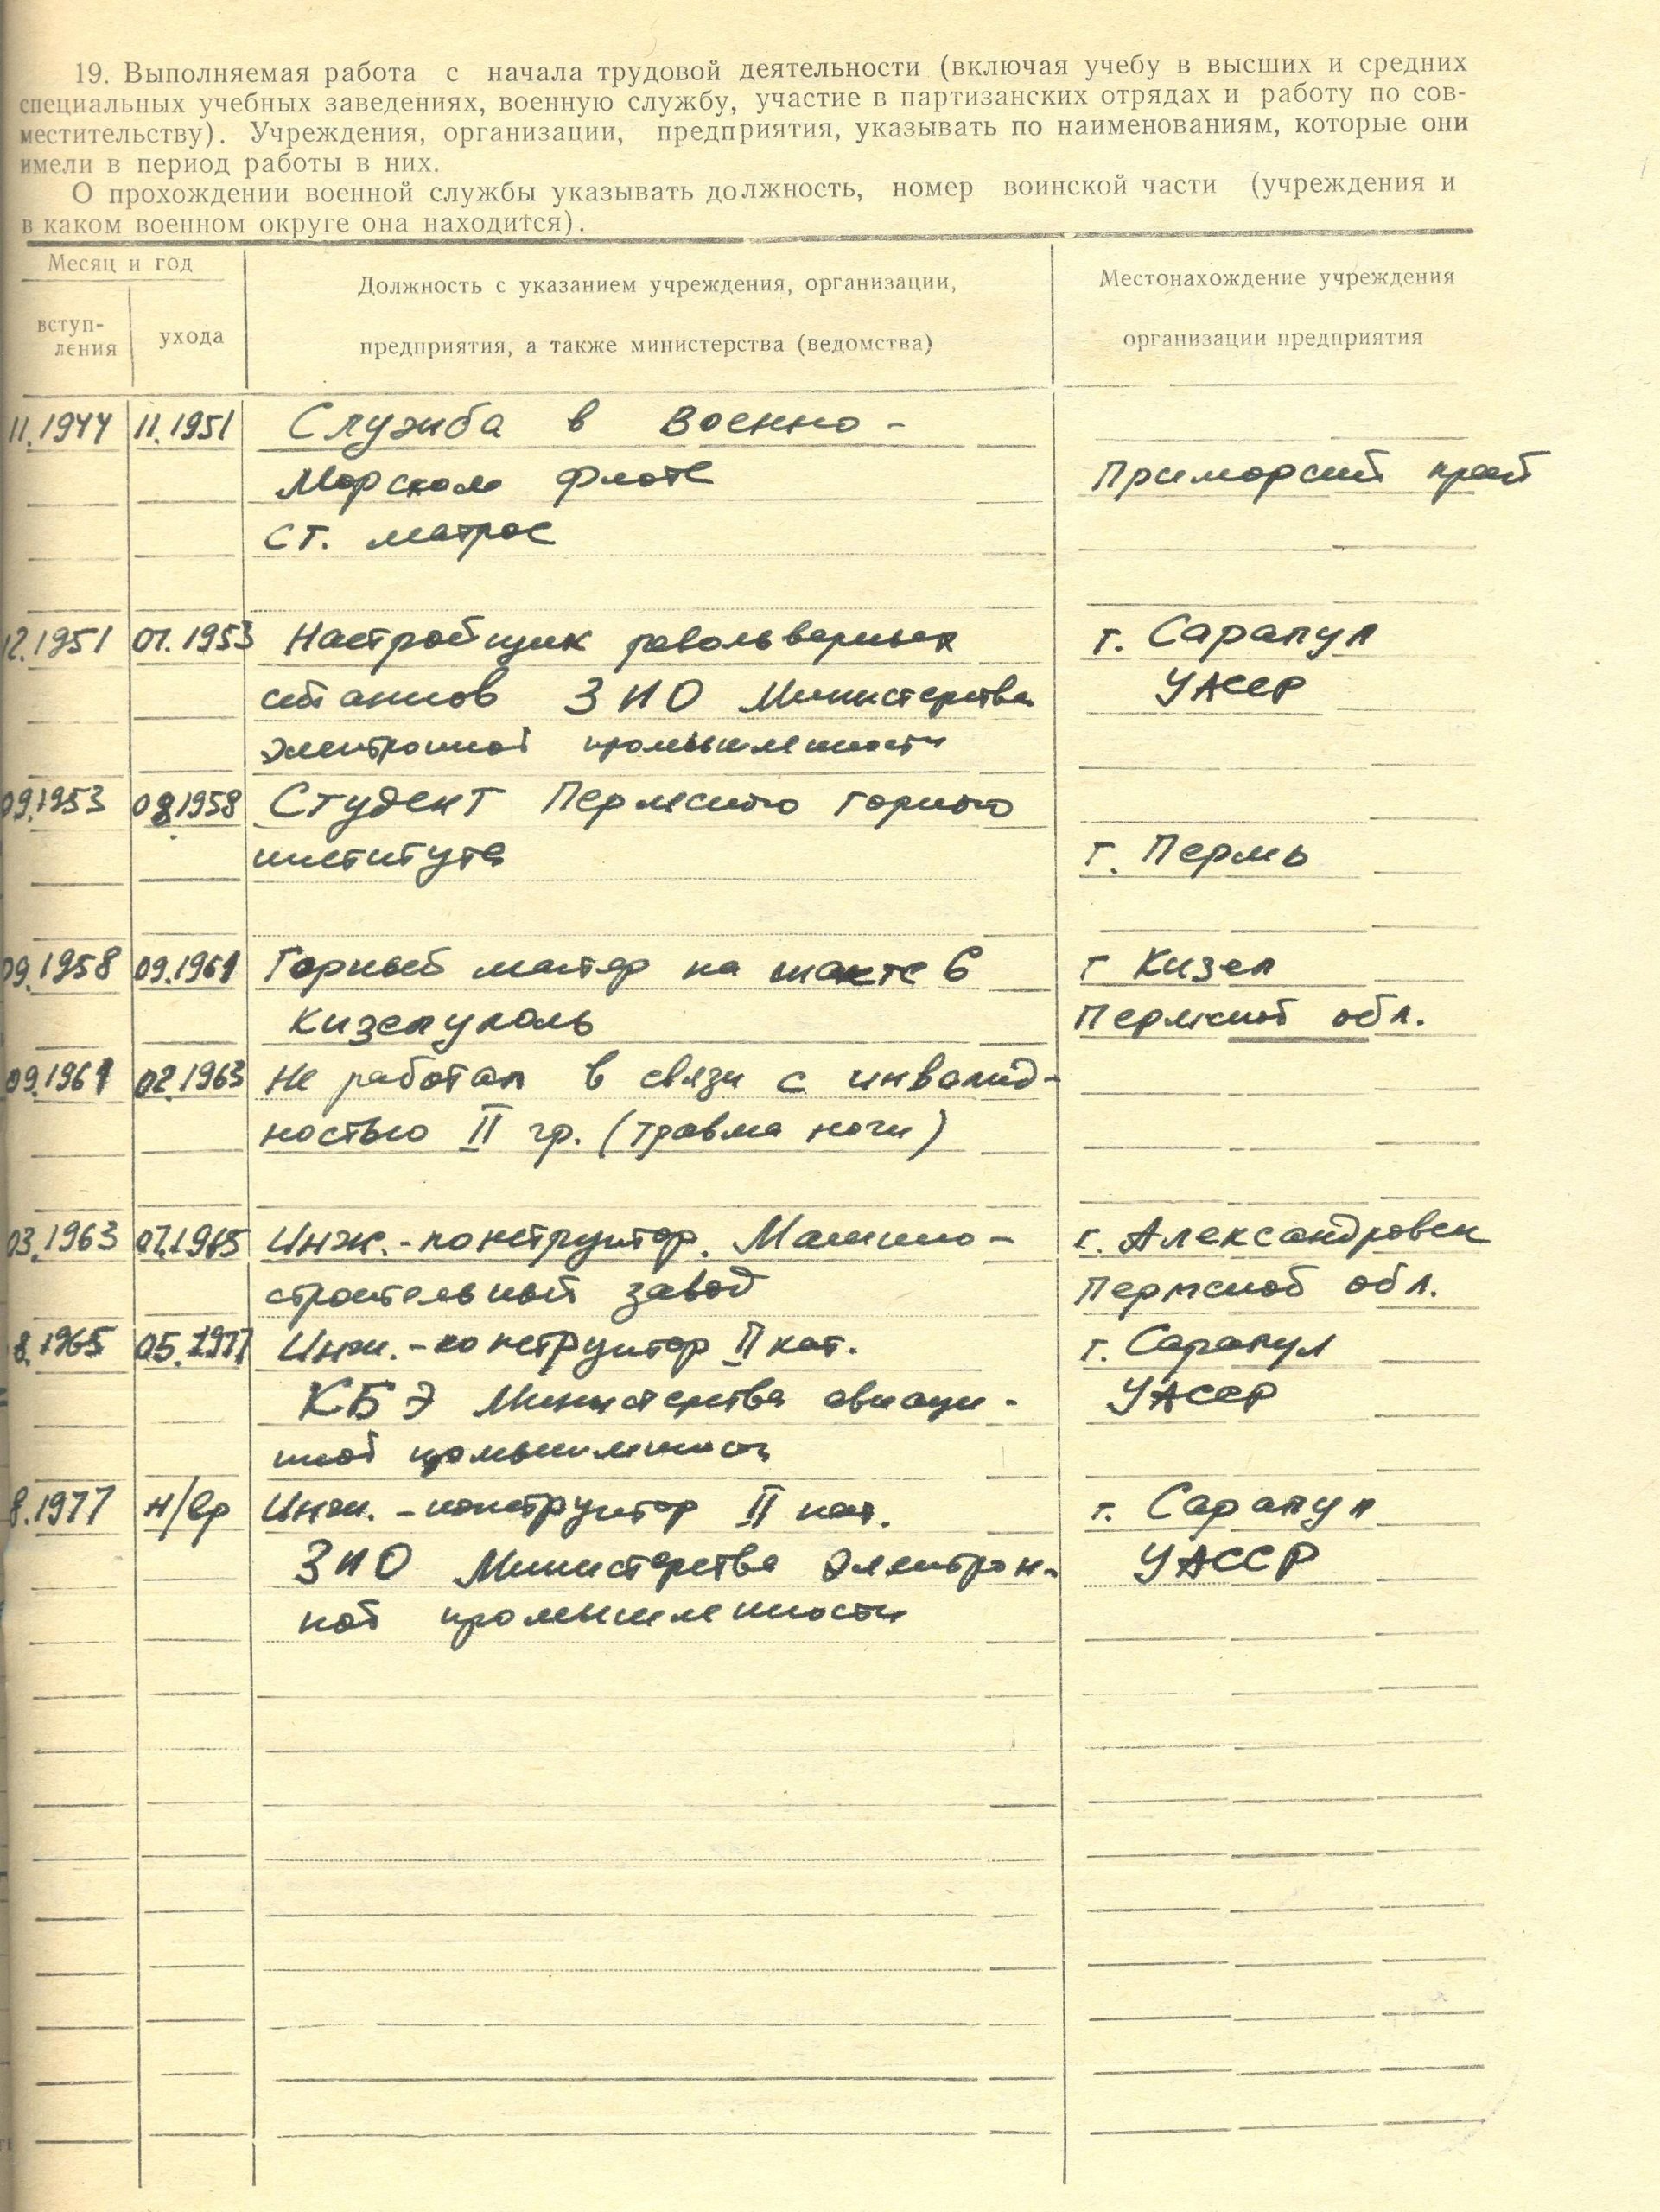 19. Выполняемая работа с начала трудовой деятельности (включая учебу в высших и средних
специальных учебных заведениях, военную службу, участие в партизанских отрядах и работу по сов-
местительству). Учреждения, организации, предприятия, указывать по наименованиям, которые они
имели в период работы в них.
О прохождении военной службы указывать должность, номер воинской части (учреждения и
в каком военном округе она находится).
Месяц и год
вступ-
ления
ухода
Должность с указанием учреждения, организации,
предприятия, а также министерства (ведомства)
Местонахождение учреждения
организации предприятия
11.1944 11.1951 Служба в Военно-
Морском флоте Приморский край
ст. матрос
12.1951 07.1953 Настройщик револьверных г. Сарапул
станков ЗПО Министерства УАССР
электронной промышленности
09.1953 08.1958 Студент Пермского горного
института г. Пермь
09.1958 09.1961 Горный мастер на шахте 6 г Кизел
Кизелуголь Пермской обл.
09.1961 02.1963 Не работал в связи с инвалид-
ностью II гр. (травма ноги)
03.1963 07.1965 Инж.-конструктор. Машино- г. Александровск
строительный завод Пермской обл.
8.1965 05.1977 Инж.-конструктор II кат. г. Сарапул
КБЭ Министерства авиаци- УАССР
нной промышленности
8.1977 н/вр Инж.-конструктор II кат. г. Сарапул
ЗПО Министерства электрон- УАССР
ной промышленности